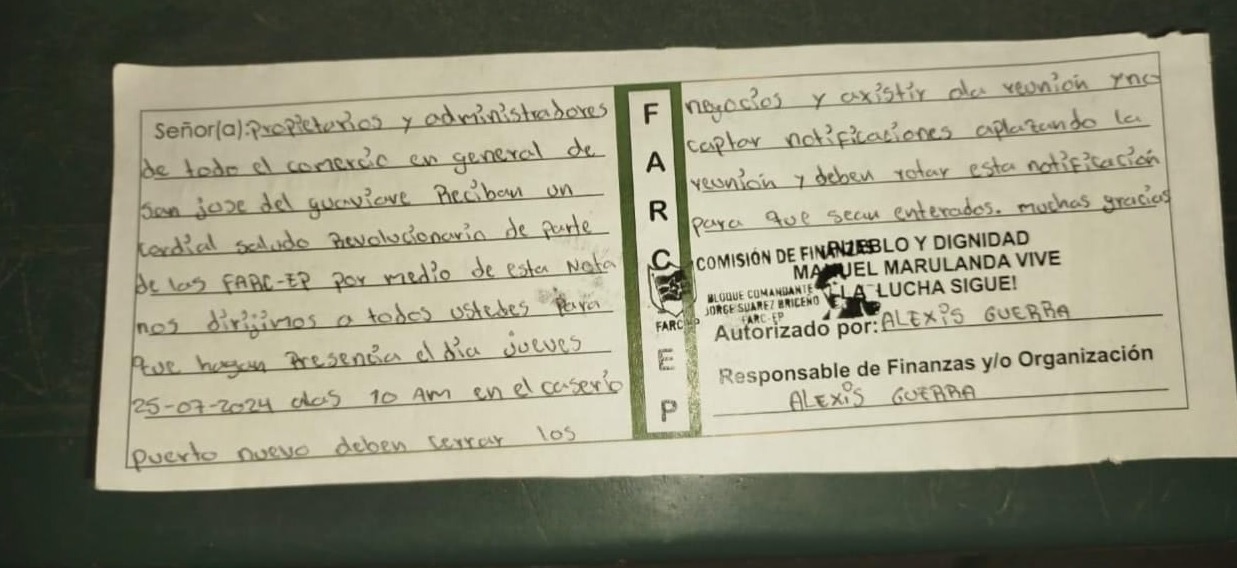 Señor(a): Propietarios y administrabores
de todo el comercio en general de
san jose del guaviare Reciban un
cordial saludo Revolucionario de parte
de las FARC-EP por medio de esta Nota
nos dirijimos a todos ustedes para
que hagan Presencia el dia jueves
25-07-2024 alas 10 AM en el caserio
puerto nuevo deben cerrar los
F
A
R
C
FARC
E
P
negocios y axistir ala reunion y no
captar notificaciones aplazando la
reunion y deben rotar esta notificación
para que sean enterados. muchas gracias
COMISIÓN DE FINANZAS
BLO Y DIGNIDAD
MANUEL MARULANDA VIVE
LA LUCHA SIGUE!
BLOQUE COMANDANTE
JORGE SUAREZ BRICEÑO
FARC-EP
Autorizado por: ALEXIS GUERRA
Responsable de Finanzas y/o Organización
ALEXIS GUERRA